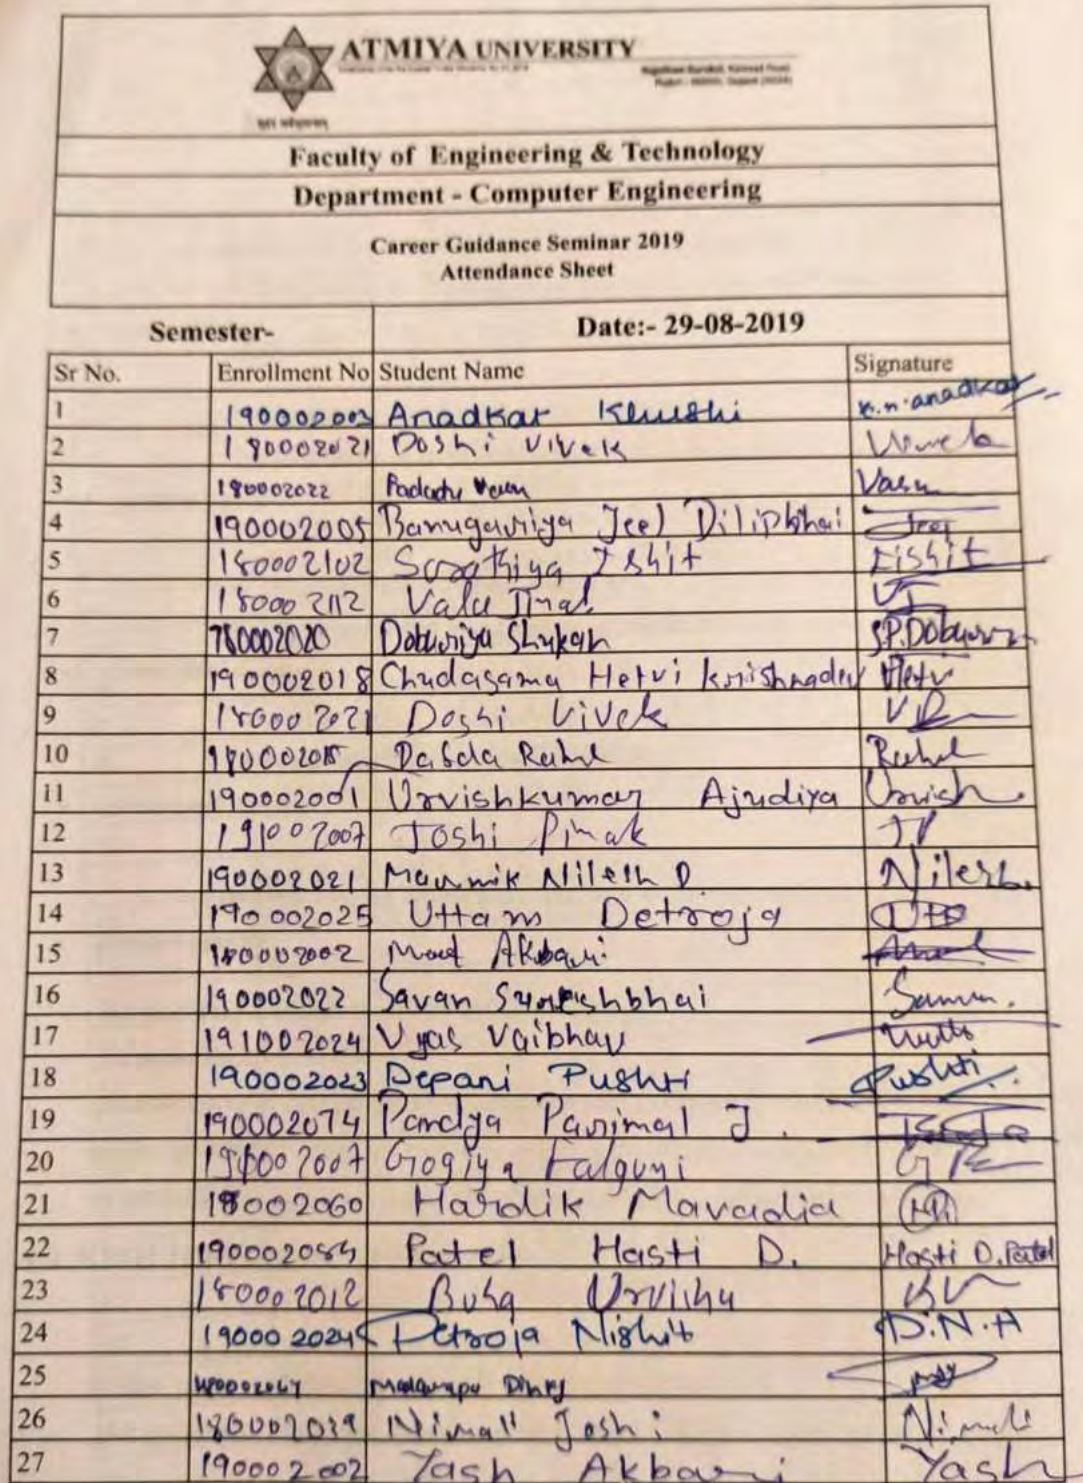 ATMIYA UNIVERSITY
Faculty of Engineering & Technology
Department - Computer Engineering
Career Guidance Seminar 2019
Attendance Sheet
Semester- Date:- 29-08-2019
Sr No. Enrollment No Student Name Signature
1 190002003 Anadkat Khushi k.n.anadkat
2 180002021 Doshi Vivek
3 180002022 Vasu
4 190002005 Banugariya Jeel Dilipbhai Jeel
5 180002102 Sorathiya Ishit Iishit
6 180002112 Vala Jinal VJ
7 180002020 Dobariya Shukan S.P.Dobariya
8 190002018 Chudasama Hetvi krishnadev Hetvi
9 180002021 Doshi Vivek
10 Dasda Rahul Rahul
11 190002001 Urvishkumar Ajudiya Urvish
12 191002007 Joshi Pinak JP
13 190002021 Maunik Nilesh D. Nilesh.
14 190002025 Uttam Detroja
15 180002002 Akbari
16 190002022 Savan Sureshbhai
17 191002024 Vyas Vaibhav
18 190002023 Depani Pushti Pushti
19 190002074 Pandya Parimal J.
20 Gogiya Falguni
21 18002060 Hardik Mavadia
22 Patel Hasti D. Hasti D.Patel
23 180002012 Buha Urvisha
24 190002024 Detroja Nishit D.N.A
25
26 180002039 Nimali Joshi Nimali
27 190002002 Yash Akbari Yash